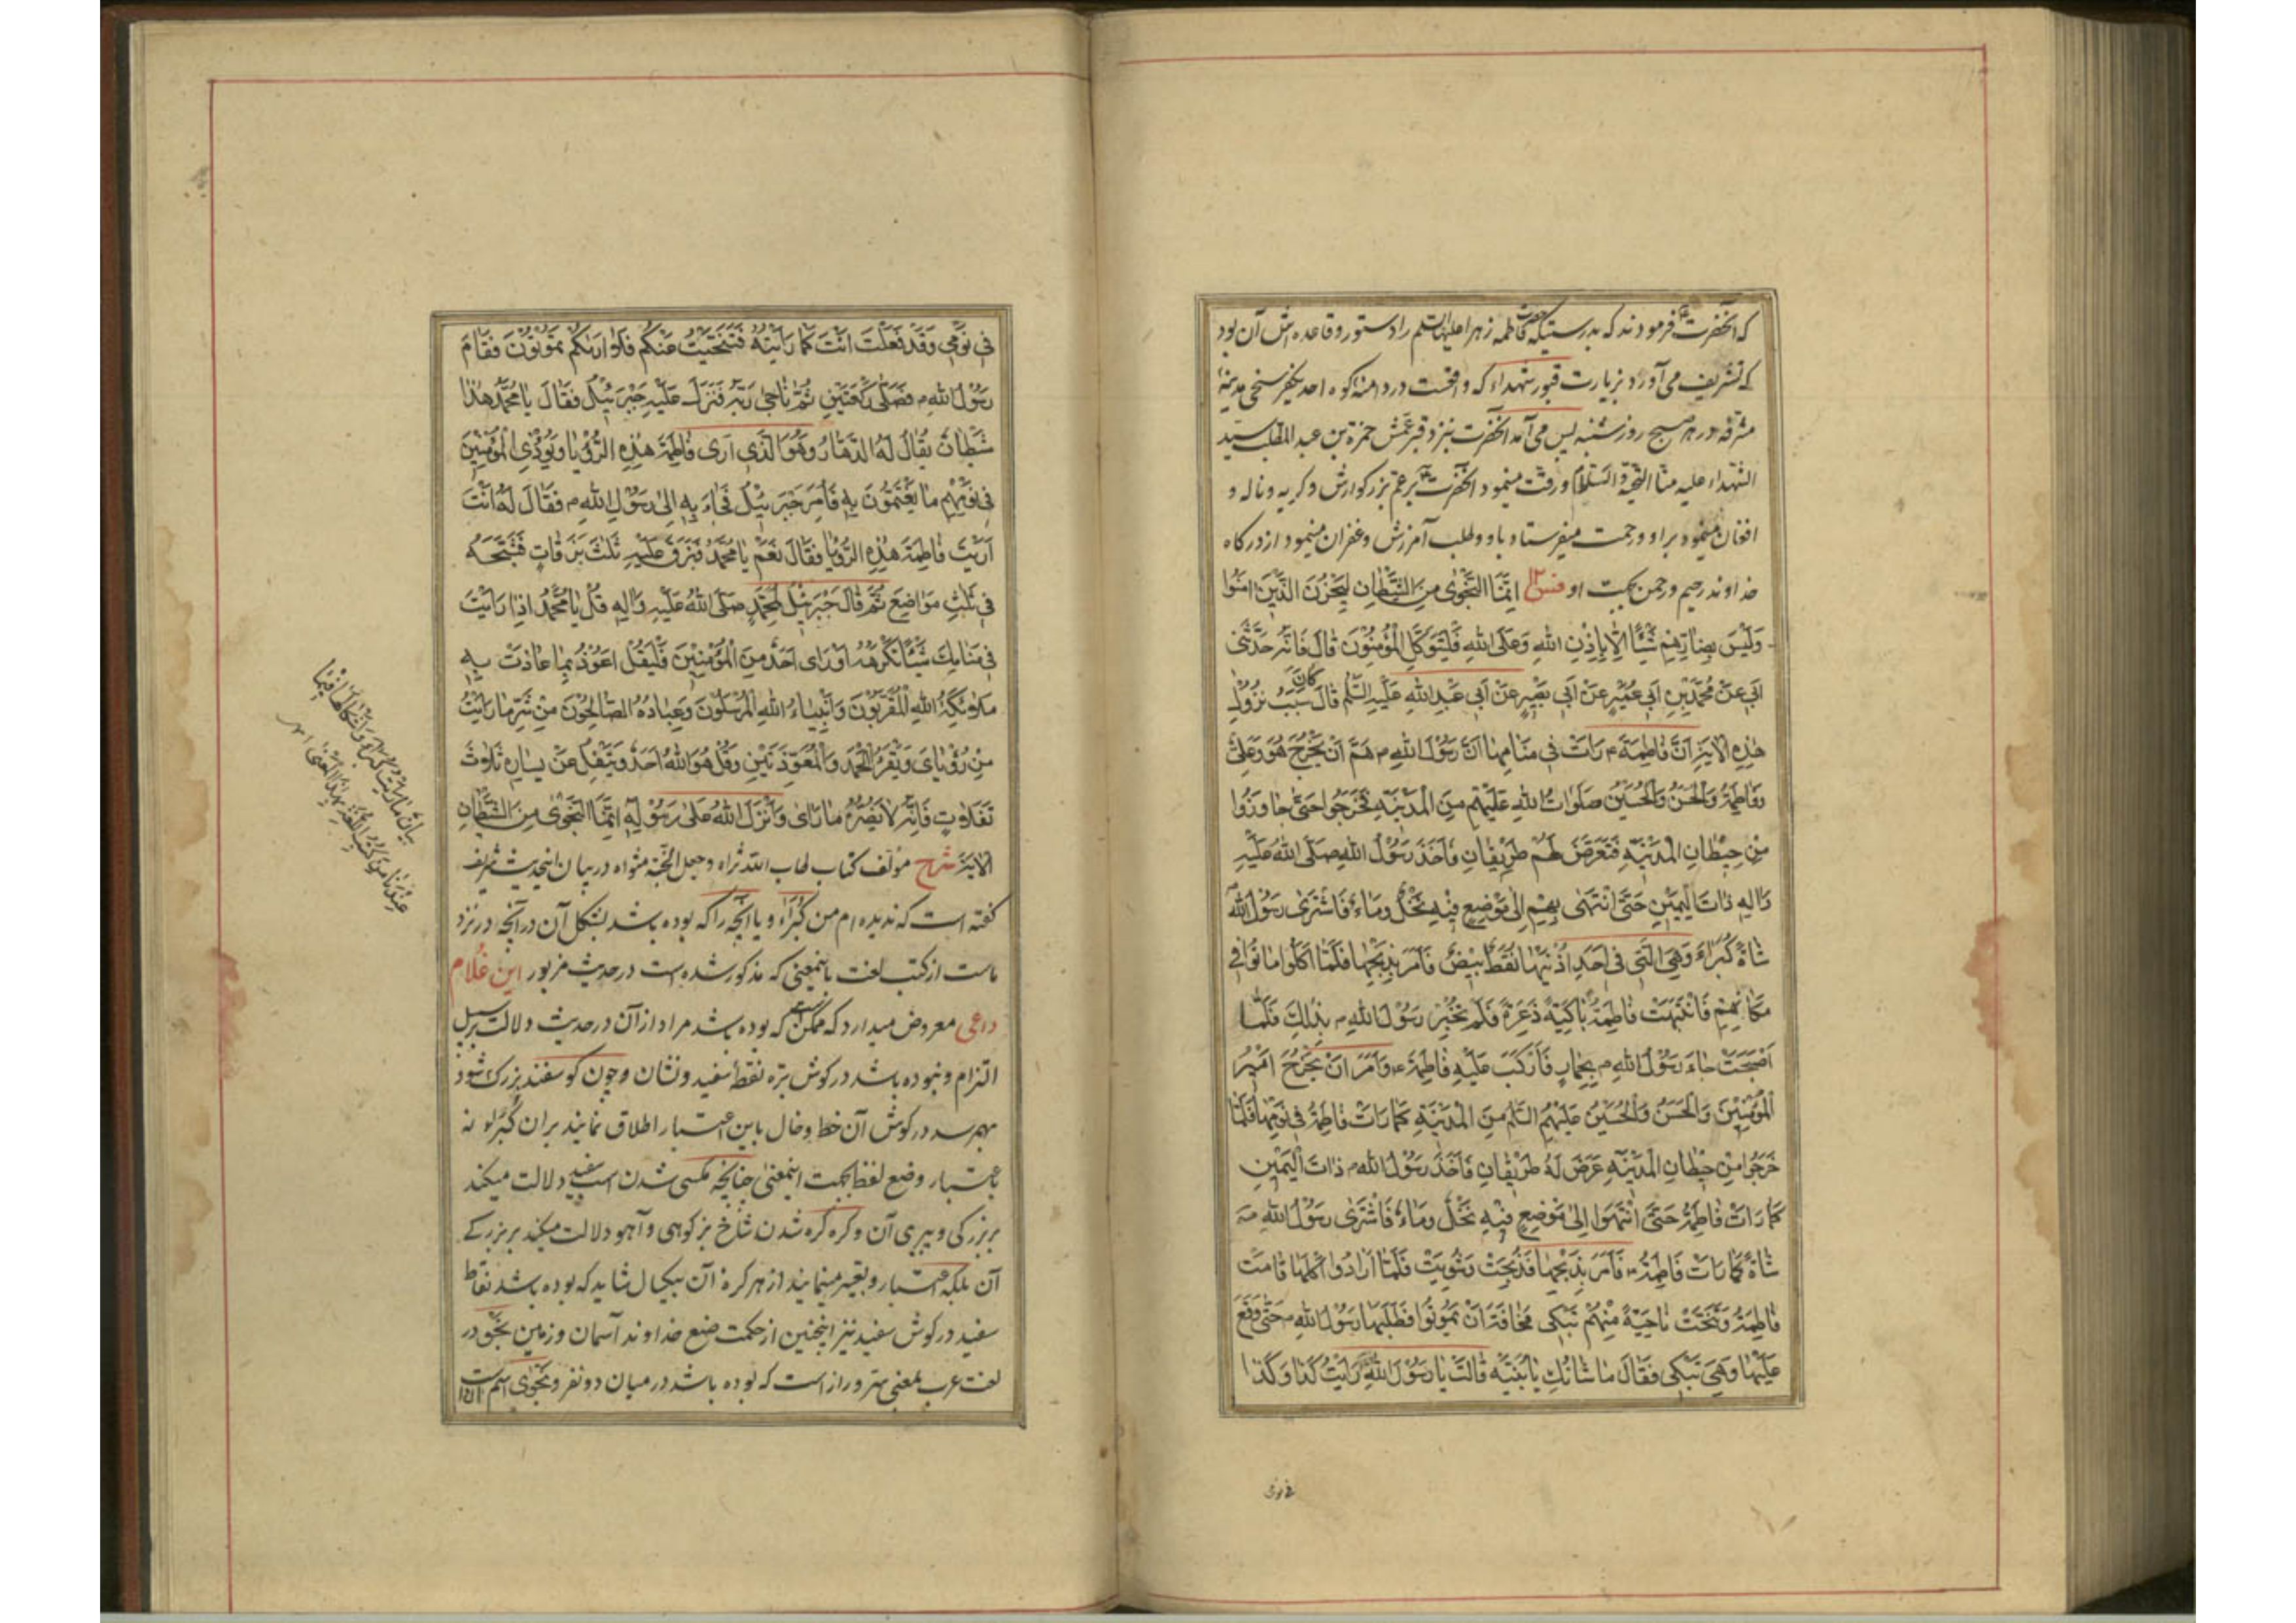 که آنحضرت فرمودند که بدرستیکه حضرت فاطمه زهرا علیها السلم را دستور و قاعده اش آن بود
که تشریف می آورد بزیارت قبور شهداء که واقعست در دامنهٔ کوه احد یکفرسخی مدینهٔ
مشرفه در هر صبح روز شنبه پس می آمد آنحضرت بنزد قبر عمش حمزة بن عبد المطلب سید
الشهداء علیه منا التحیة والسلام و رقت مینمود آنحضرت بر عم بزرکوارش و کریه و ناله و
افغان مینمود براو و رحمت میفرستاد باو و طلب آمرزش و غفران مینمود از درکاه
خداوند رحیم و رحمن بجهت او فس اِنَّمَا النَّجْوٰى مِنَ الشَّيْطَانِ لِيَحْزُنَ الَّذِينَ اٰمَنُوا
وَلَيْسَ بِضَارِّهِمْ شَيْئًا اِلَّا بِاِذْنِ اللّٰهِ وَعَلَى اللّٰهِ فَلْيَتَوَكَّلِ الْمُؤْمِنُونَ قَالَ فَاِنَّهُ حَدَّثَنِي
اَبِي عَنْ مُحَمَّدِ بْنِ اَبِي عُمَيْرٍ عَنْ اَبِي بَصِيرٍ عَنْ اَبِي عَبْدِ اللّٰهِ عَلَيْهِ السَّلَمُ قَالَ كَانَ سَبَبُ نُزُولِ
هٰذِهِ الْاٰيَةِ اَنَّ فَاطِمَةَ ع رَاَتْ فِي مَنَامِهَا اَنَّ رَسُولَ اللّٰهِ ص هَمَّ اَنْ يَخْرُجَ هُوَ وَعَلِيٌّ
وَفَاطِمَةُ وَالْحَسَنُ وَالْحُسَيْنُ صَلَوَاتُ اللّٰهِ عَلَيْهِمْ مِنَ الْمَدِينَةِ فَخَرَجُوا حَتّٰى جَاوَزُوا
مِنْ حِيطَانِ الْمَدِينَةِ فَتَعَرَّضَ لَهُمْ طَرِيقَانِ فَاَخَذَ رَسُولُ اللّٰهِ صَلَّى اللّٰهُ عَلَيْهِ
وَاٰلِهِ ذَاتَ الْيَمِينِ حَتَّى انْتَهٰى بِهِمْ اِلٰى مَوْضِعٍ فِيهِ نَخْلٌ وَمَاءٌ فَاشْتَرٰى رَسُولُ اللّٰهِ
شَاةً كُبَرَاءَ وَهِيَ الَّتِي فِي اَحَدِ اُذُنَيْهَا نُقَطٌ بِيضٌ فَاَمَرَ بِذَبْحِهَا فَلَمَّا اَكَلُوا مَاتُوا فِي
مَكَانِهِمْ فَانْتَبَهَتْ فَاطِمَةُ بَاكِيَةً ذَعِرَةً فَلَمْ تُخْبِرْ رَسُولَ اللّٰهِ ص بِذٰلِكَ فَلَمَّا
اَصْبَحَتْ جَاءَ رَسُولُ اللّٰهِ ص بِحِمَارٍ فَاَرْكَبَ عَلَيْهِ فَاطِمَةَ ع وَاَمَرَ اَنْ يَخْرُجَ اَمِيرُ
الْمُؤْمِنِينَ وَالْحَسَنُ وَالْحُسَيْنُ عَلَيْهِمُ السَّلَمُ مِنَ الْمَدِينَةِ كَمَا رَاَتْ فَاطِمَةُ فِي نَوْمِهَا فَلَمَّا
خَرَجُوا مِنْ حِيطَانِ الْمَدِينَةِ عَرَضَ لَهُ طَرِيقَانِ فَاَخَذَ رَسُولُ اللّٰهِ ص ذَاتَ الْيَمِينِ
كَمَا رَاَتْ فَاطِمَةُ حَتَّى انْتَهَوْا اِلٰى مَوْضِعٍ فِيهِ نَخْلٌ وَمَاءٌ فَاشْتَرٰى رَسُولُ اللّٰهِ ص
شَاةً كَمَا رَاَتْ فَاطِمَةُ ع فَاَمَرَ بِذَبْحِهَا فَذُبِحَتْ وَشُوِيَتْ فَلَمَّا اَرَادُوا اَكْلَهَا قَامَتْ
فَاطِمَةُ وَتَنَحَّتْ نَاحِيَةً مِنْهُمْ تَبْكِي مَخَافَةَ اَنْ يَمُوتُوا فَطَلَبَهَا رَسُولُ اللّٰهِ ص حَتّٰى وَقَعَ
عَلَيْهَا وَهِيَ تَبْكِي فَقَالَ مَا شَانُكِ يَا بُنَيَّةِ قَالَتْ يَا رَسُولَ اللّٰهِ رَاَيْتُ كَذَا وَكَذَا
فی نومی
فِي نَوْمِي وَقَدْ فَعَلْتَ اَنْتَ كَمَا رَاَيْتُهُ فَتَنَحَّيْتُ عَنْكُمْ فَلَا اَرَاكُمْ تَمُوتُونَ فَقَامَ
رَسُولُ اللّٰهِ ص فَصَلّٰى رَكْعَتَيْنِ ثُمَّ نَاجٰى رَبَّهُ فَنَزَلَ عَلَيْهِ جَبْرَئِيلُ فَقَالَ يَا مُحَمَّدُ هٰذَا
شَيْطَانٌ يُقَالُ لَهُ الدَّهَارُ وَهُوَ الَّذِي اَرٰى فَاطِمَةَ هٰذِهِ الرُّؤْيَا وَيُؤْذِي الْمُؤْمِنِينَ
فِي نَوْمِهِمْ مَا يَغْتَمُّونَ بِهِ فَاَمَرَ جَبْرَئِيلُ فَجَاءَ بِهِ اِلٰى رَسُولِ اللّٰهِ ص فَقَالَ لَهُ اَنْتَ
اَرَيْتَ فَاطِمَةَ هٰذِهِ الرُّؤْيَا فَقَالَ نَعَمْ يَا مُحَمَّدُ فَبَزَقَ عَلَيْهِ ثَلٰثَ بَزَقَاتٍ فَشَجَّهُ
فِي ثَلٰثِ مَوَاضِعَ ثُمَّ قَالَ جَبْرَئِيلُ لِمُحَمَّدٍ صَلَّى اللّٰهُ عَلَيْهِ وَاٰلِهِ قُلْ يَا مُحَمَّدُ اِذَا رَاَيْتَ
فِي مَنَامِكَ شَيْئًا تَكْرَهُهُ اَوْ رَاٰى اَحَدٌ مِنَ الْمُؤْمِنِينَ فَلْيَقُلْ اَعُوذُ بِمَا عَاذَتْ بِهِ
مَلَائِكَةُ اللّٰهِ الْمُقَرَّبُونَ وَاَنْبِيَاءُ اللّٰهِ الْمُرْسَلُونَ وَعِبَادُهُ الصَّالِحُونَ مِنْ شَرِّ مَا رَاَيْتُ
مِنْ رُؤْيَايَ وَيَقْرَءُ الْحَمْدَ وَالْمُعَوِّذَتَيْنِ وَقُلْ هُوَ اللّٰهُ اَحَدٌ وَيَتْفِلُ عَنْ يَسَارِهِ ثَلَاثَ
تَفَلَاتٍ فَاِنَّهُ لَا يَضُرُّهُ مَا رَاٰى وَاَنْزَلَ اللّٰهُ عَلٰى رَسُولِهِ اِنَّمَا النَّجْوٰى مِنَ الشَّيْطَانِ
الْاٰيَةَ شرح مؤلف کتاب طاب الله ثراه وجعل الجنة مثواه در بیان اینحدیث شریف
کفته است که ندیده ام من کبراء و یا آنچه را که بوده باشد بشکل آن در آنچه در نزد
ماست از کتب لغت باینمعنی که مذکور شده است در حدیث مزبور این غلام
داعی معروض میدارد که ممکن است که بوده باشد مراد از آن در حدیث دلالت بر سبیل
التزام و نبوده باشد در کوش بره نقطهٔ سفید و نشان و چون کوسفند بزرک شود
بهم رسد در کوش آن خط و خال باین اعتبار اطلاق نمایند بران کبراء نه
باعتبار وضع لفظ بجهت اینمعنی چنانچه مکسی شدن اسب سفید دلالت میکند
بر بزرکی و پیری آن و کره کره شدن شاخ بز کوهی و آهو دلالت میکند بر بزرکی
آن بلکه اعتبار و تعبیر مینمایند از هر کره آن بیکسال شاید که بوده باشد نقاط
سفید در کوش سفید نیز اینچنین از حکمت صنع خداوند آسمان و زمین نجوی در
لغت عرب بمعنی سر و راز است که بوده باشد در میان دو نفر و نجوی اسم است